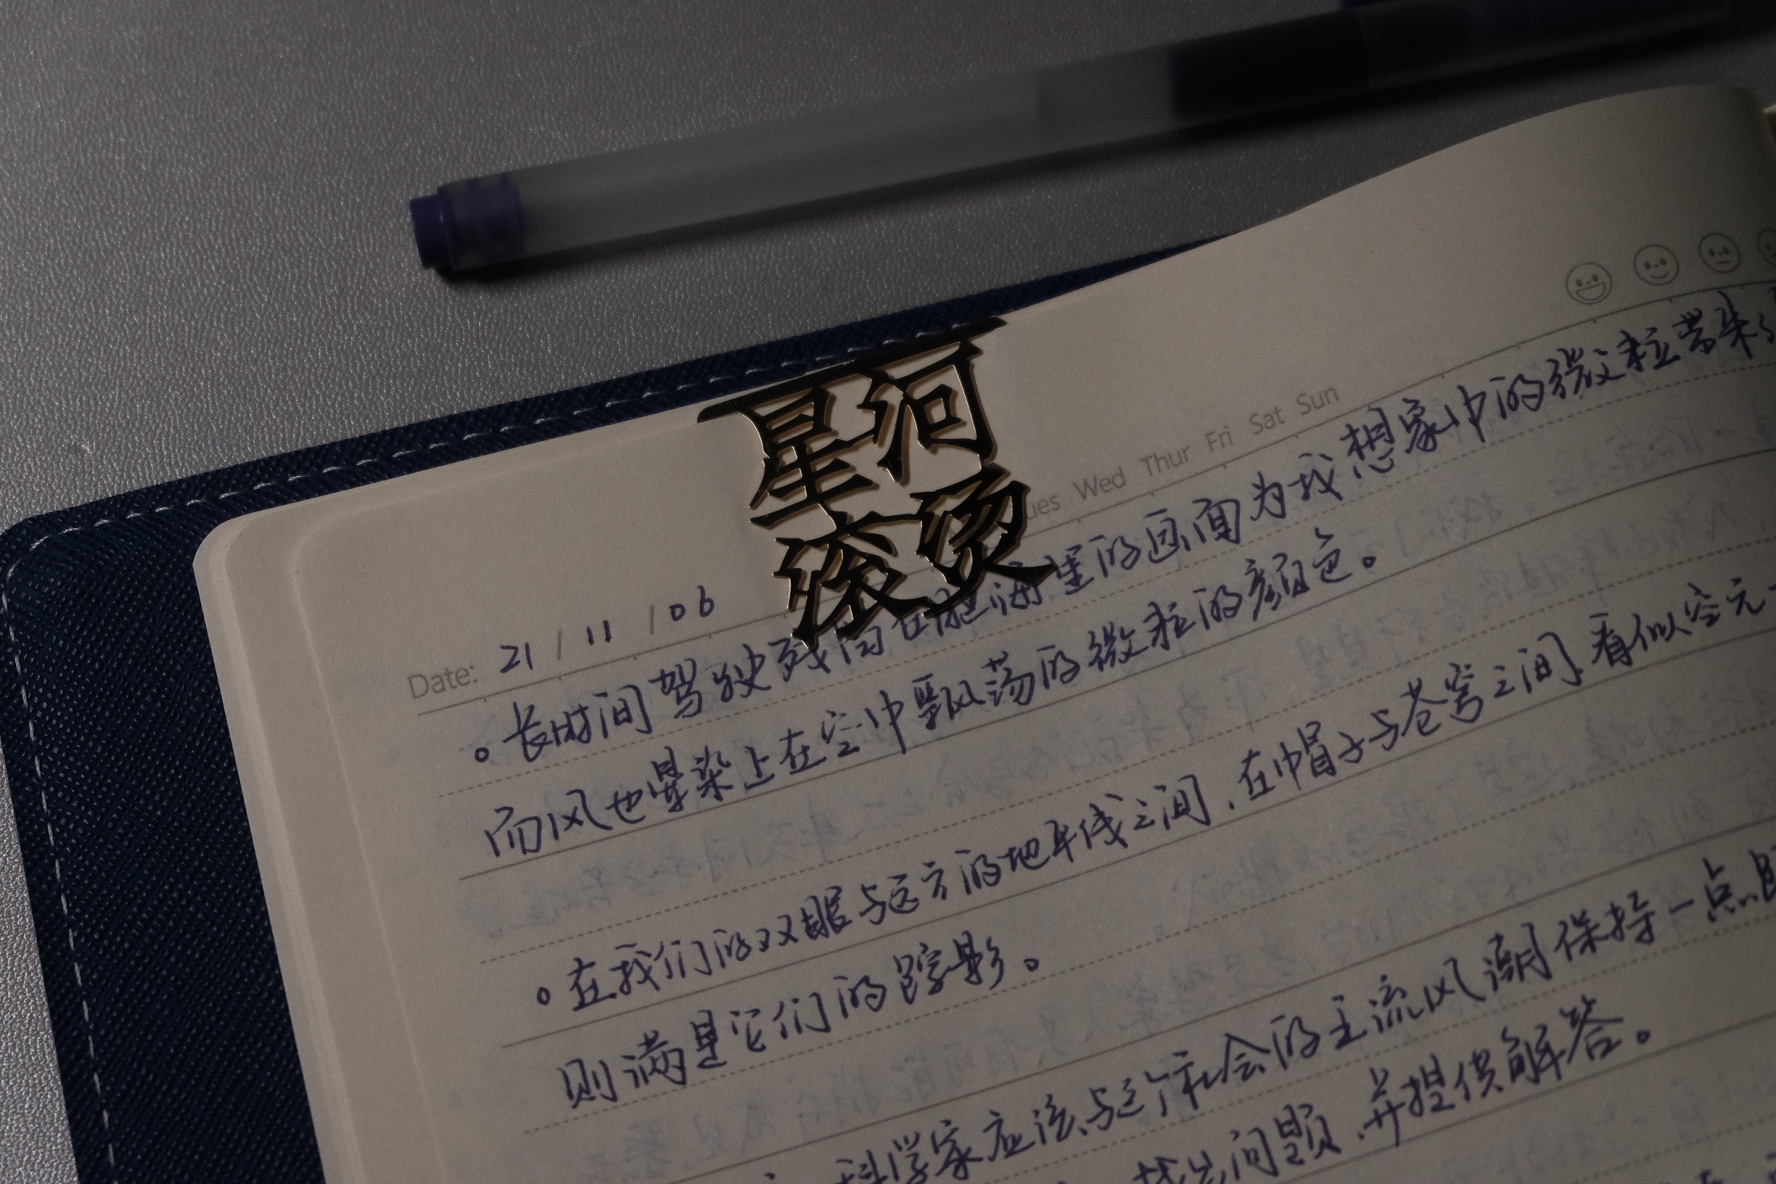 星河
滚烫
ues Wed Thur Fri Sat Sun
Date: 21 / 11 / 06
。长时间驾驶 的画面为我想象中的微粒带来了
而风也晕染上在空中飘荡的微粒的颜色。
。在我们的双眼与远方的地平线之间，在帽子与苍穹之间，看似空无一
则满是它们的踪影。
科学家应该与这个社会的主流风潮保持一点距
找出问题，并提供解答。